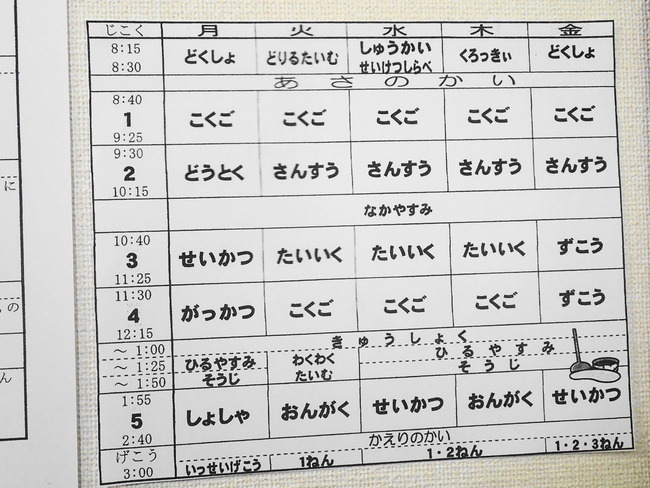 じこく 月 火 水 木 金
8:15 どくしょ どりるたいむ しゅうかい くろっきぃ どくしょ
8:30 せいけつしらべ
あさのかい
8:40
1 こくご こくご こくご こくご こくご
9:25
9:30
2 どうとく さんすう さんすう さんすう さんすう
10:15
なかやすみ
10:40
3 せいかつ たいいく たいいく たいいく ずこう
11:25
11:30
4 がっかつ こくご こくご こくご ずこう
12:15
きゅうしょく
～ 1:00
ひるやすみ わくわく ひるやすみ
～ 1:25
そうじ たいむ そうじ
～ 1:50
1:55
5 しょしゃ おんがく せいかつ おんがく せいかつ
2:40
かえりのかい
げこう
3:00 いっせいげこう 1ねん 1・2ねん 1・2・3ねん
に
の
ん